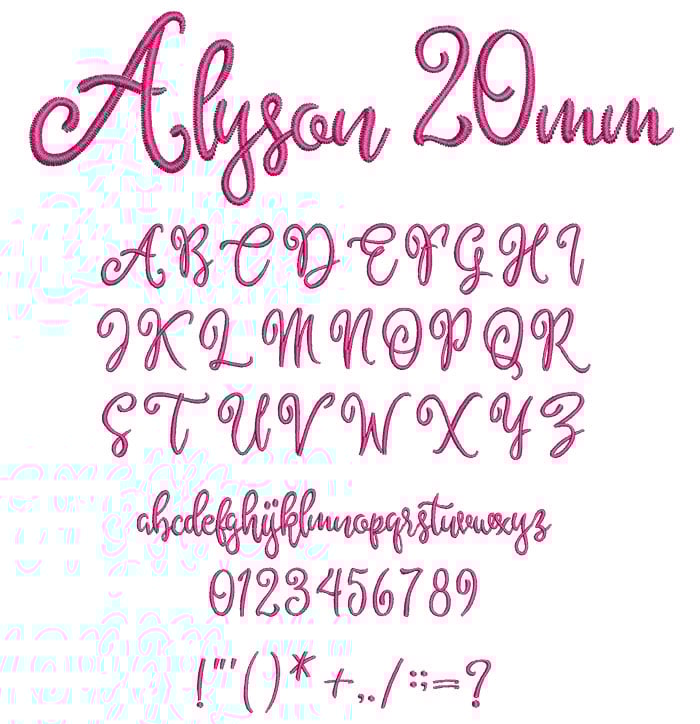 Alyson 20mm
A B C D E F G H I
J K L M N O P Q R
S T U V W X Y Z
abcdefghijklmnopqrstuvwxyz
0123456789
! " ' ( ) * + , . / : ; = ?